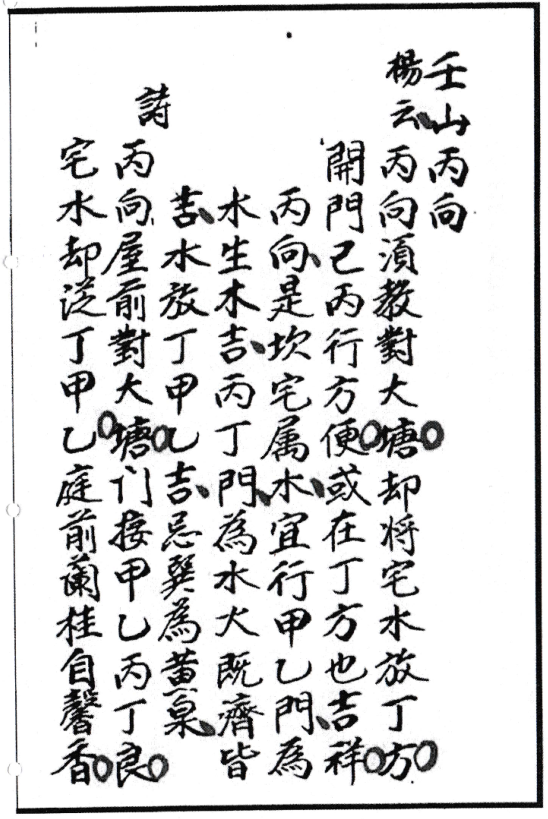 壬山丙向
楊云丙向須教對大塘却将宅水放丁方
開門已丙行方便或在丁方也吉祥
丙向是坎宅属水宜行甲乙門為
水生木吉丙丁門為水火既濟皆
吉水放丁甲乙吉忌巽為黄泉
詩丙向屋前對大塘门接甲乙丙丁良
宅水却从丁甲乙庭前蘭桂自馨香